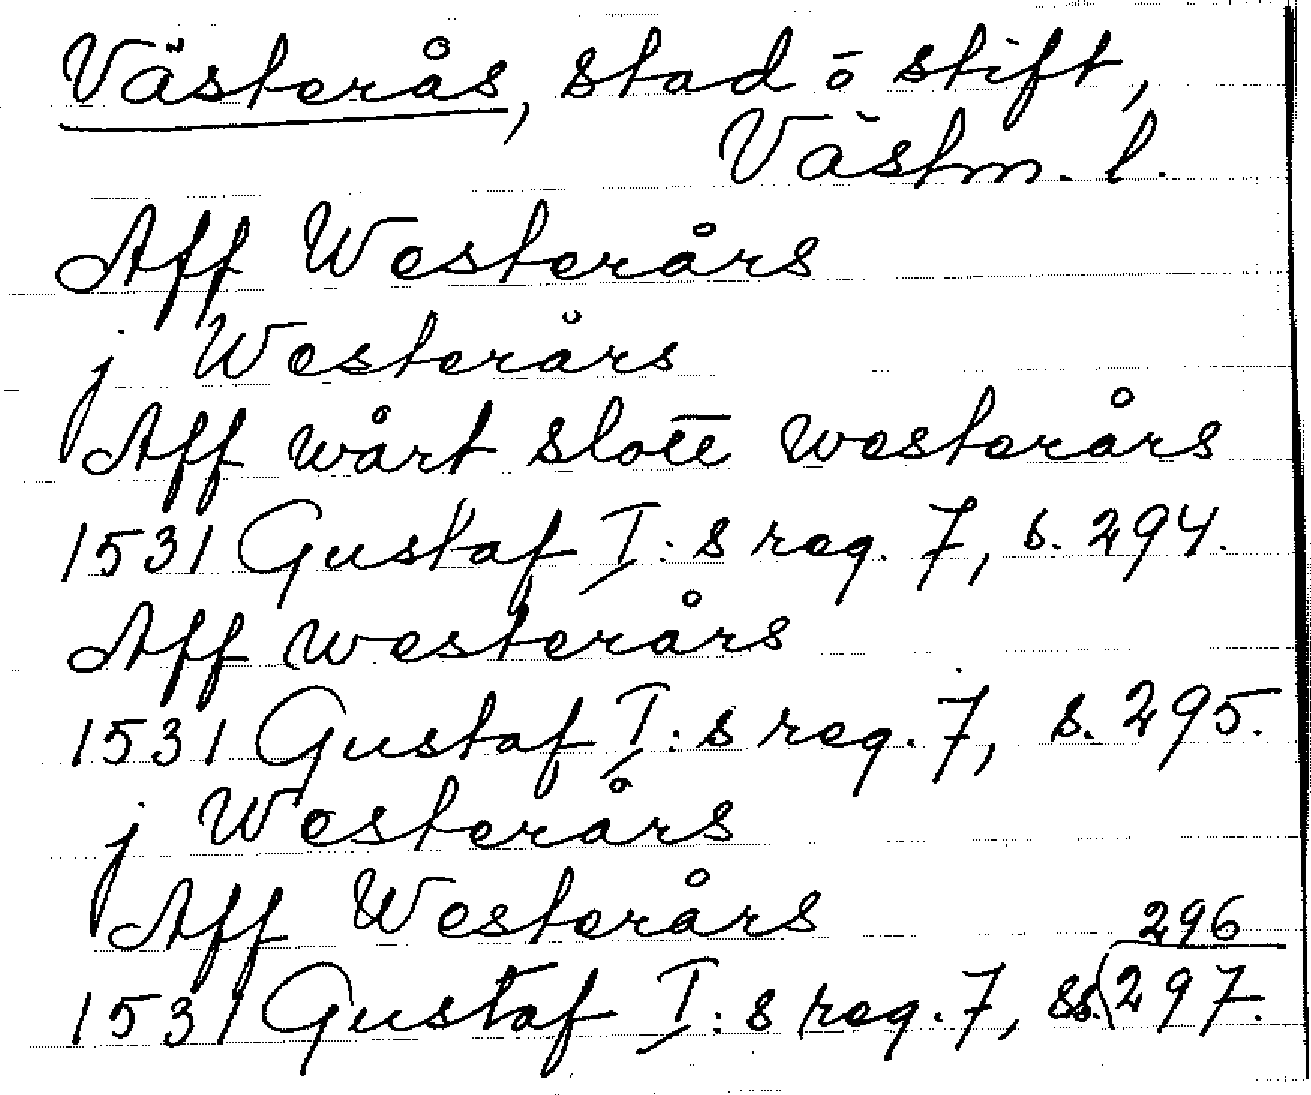 Västerås, stad ō stift,
Västm. l.
Aff Westerårs
j Westerårs
Aff wårt slott westerårs
1531 Gustaf I:s reg. 7, s. 294.
Aff westerårs
1531 Gustaf I:s reg. 7, s. 295.
j Westerårs
Aff Westerårs
296
1531 Gustaf I:s reg. 7, ss. 297.